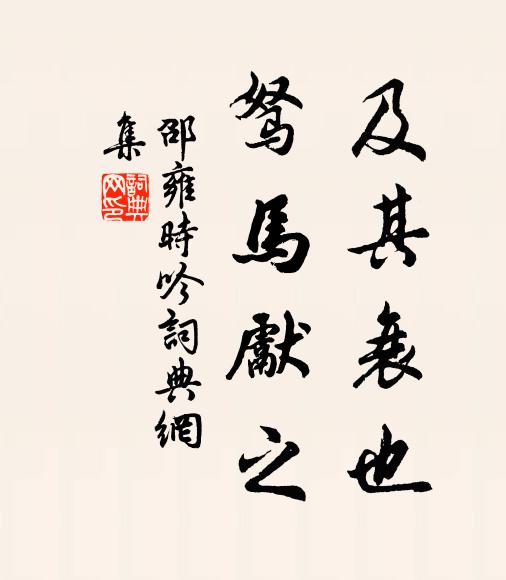 及其衰也
駑馬獻之
邵雍時吟詞典網
集
詞典
网印